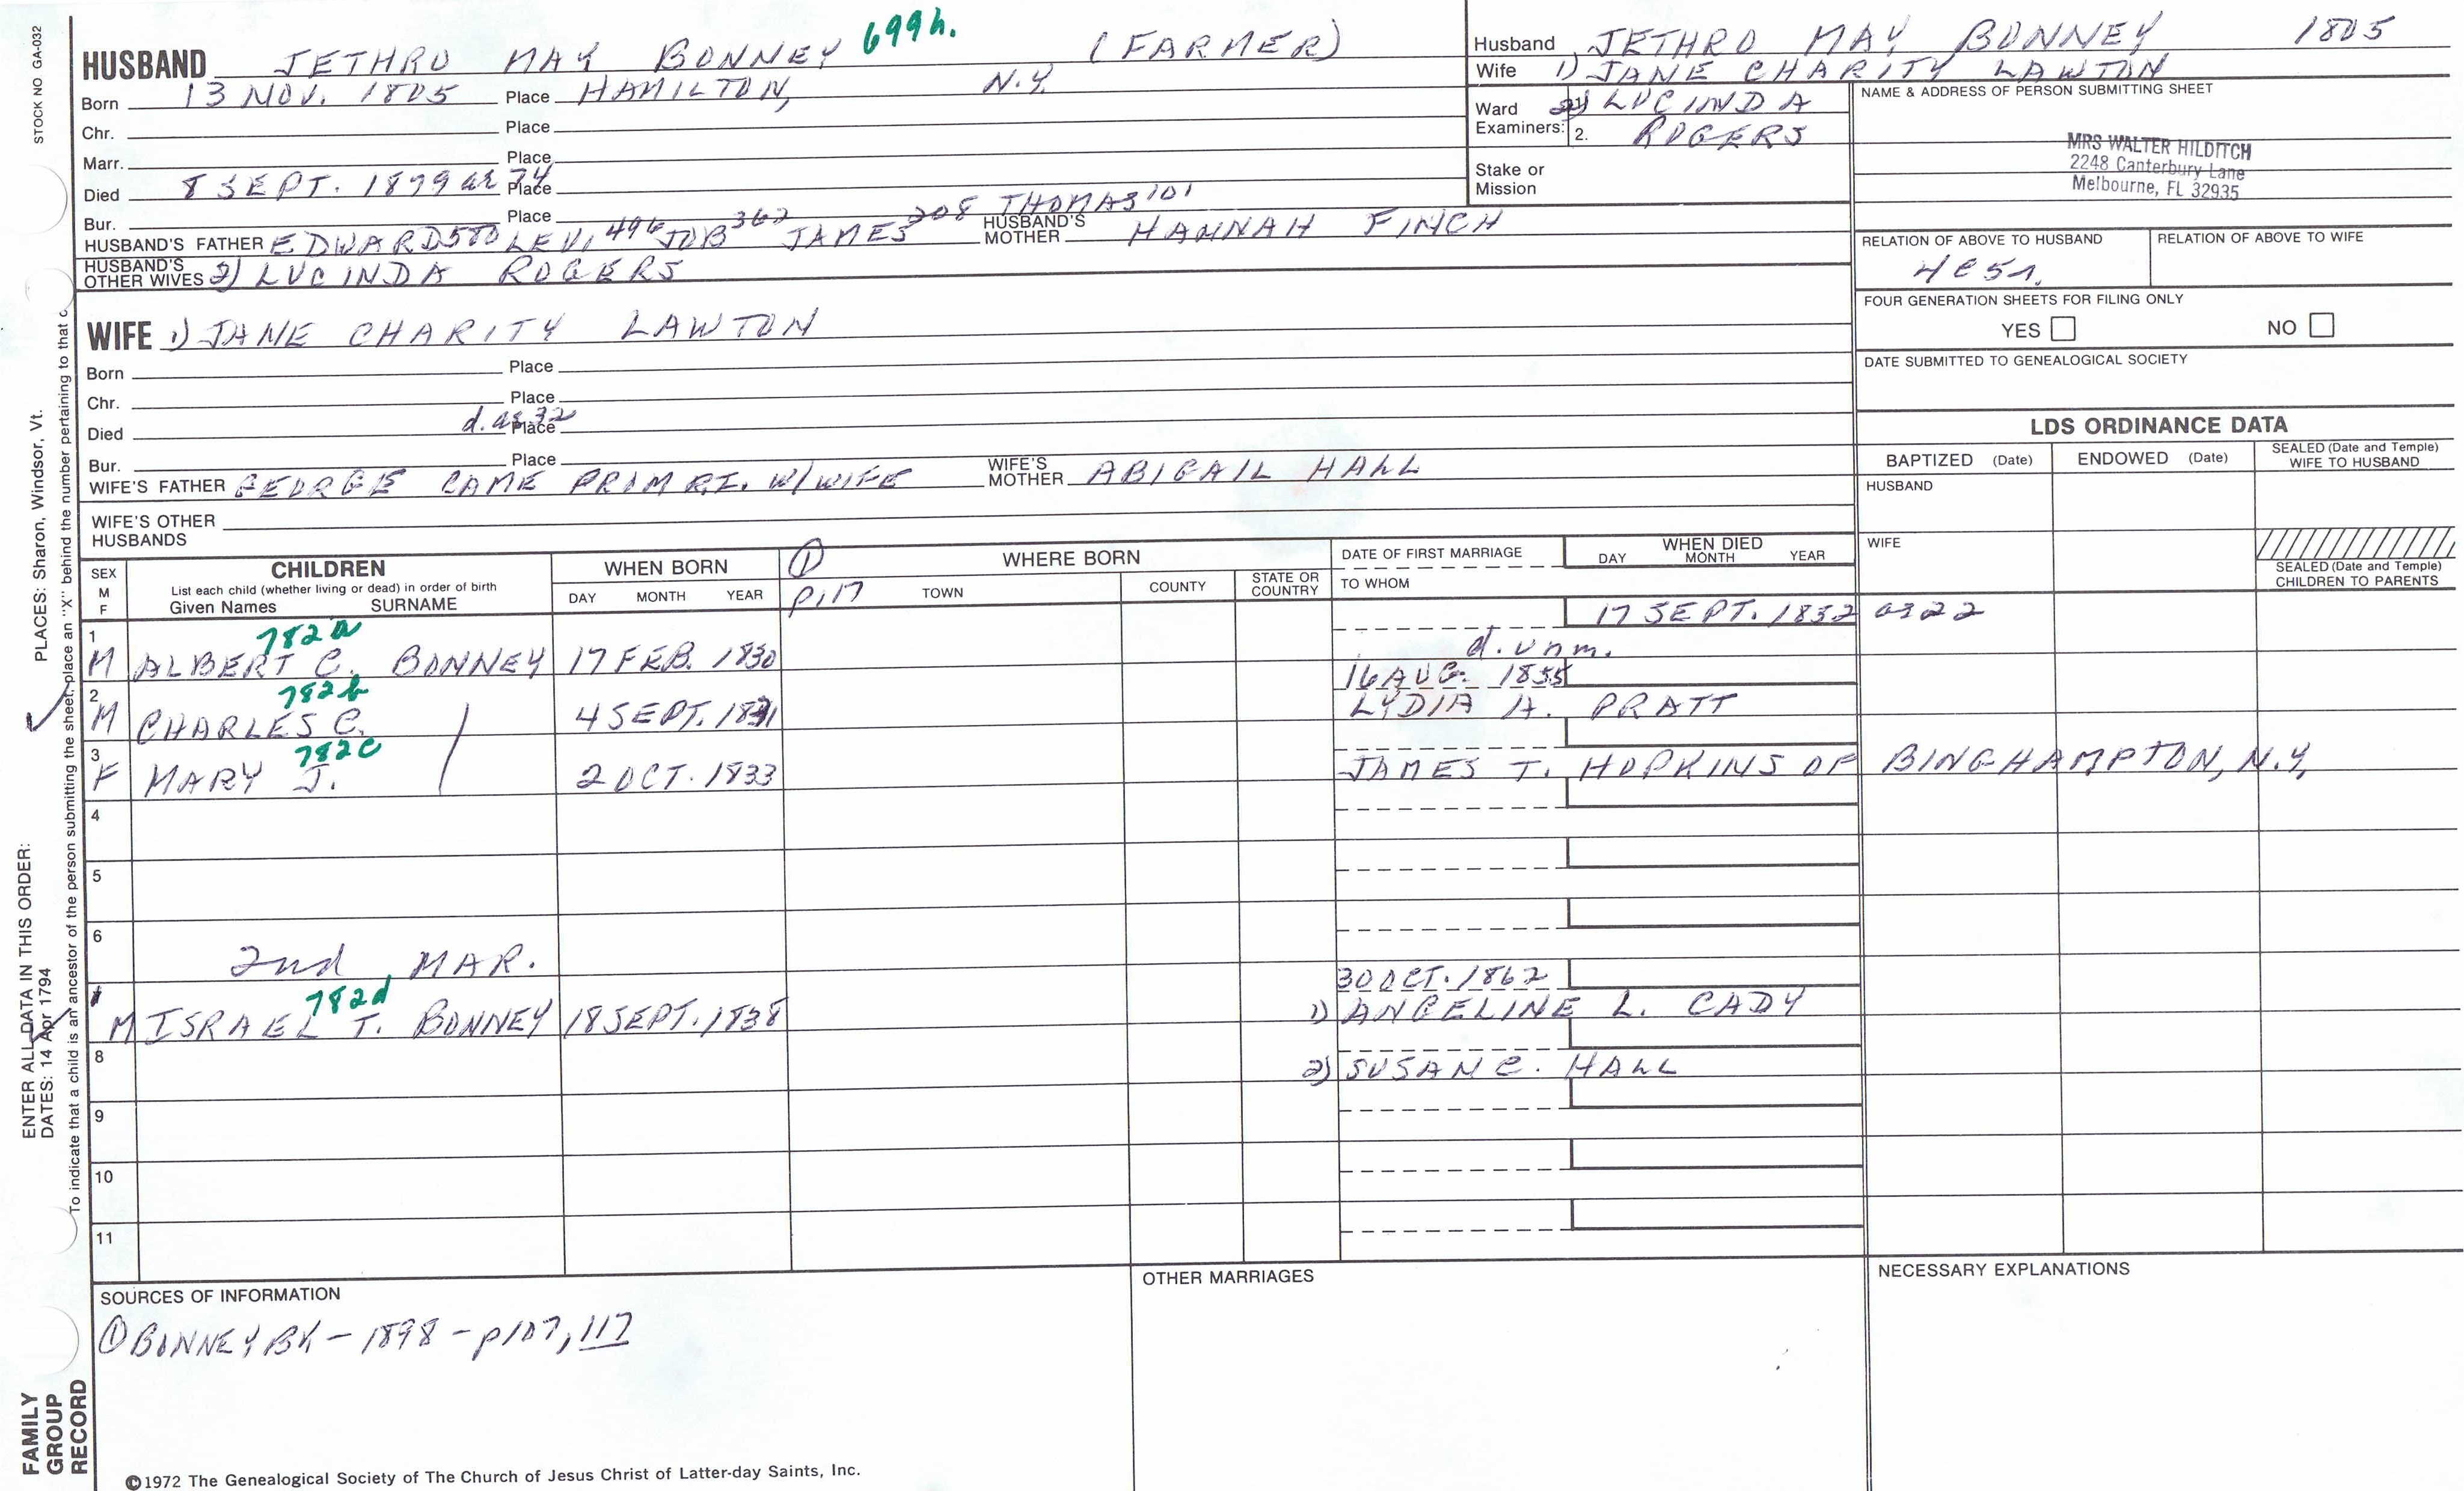 STOCK NO GA-032
HUSBAND JETHRO MAY BONNEY 699h. (FARMER)
Born 13 NOV. 1805 Place HAMILTON, N.Y.
Chr. Place
Marr. Place
Died 8 SEPT. 1879 ae 74 Place
Bur. Place
HUSBAND'S FATHER EDWARD 580 LEVI 496 JOB 362 JAMES 208 THOMAS 101 HUSBAND'S MOTHER HANNAH FINCH
HUSBAND'S OTHER WIVES 2) LUCINDA ROGERS
WIFE 1) JANE CHARITY LAWTON
Born Place
Chr. Place
Died d. ae 32 Place
Bur. Place
WIFE'S FATHER GEORGE CAME FROM R.I. W/WIFE WIFE'S MOTHER ABIGAIL HALL
WIFE'S OTHER HUSBANDS
Husband JETHRO MAY BONNEY 1805
Wife 1) JANE CHARITY LAWTON
Ward Examiners: 2) LUCINDA
2. ROGERS
Stake or Mission
NAME & ADDRESS OF PERSON SUBMITTING SHEET
MRS WALTER HILDITCH
2248 Canterbury Lane
Melbourne, FL 32935
RELATION OF ABOVE TO HUSBAND RELATION OF ABOVE TO WIFE
4C5r.
FOUR GENERATION SHEETS FOR FILING ONLY
YES NO
DATE SUBMITTED TO GENEALOGICAL SOCIETY
LDS ORDINANCE DATA
BAPTIZED (Date) ENDOWED (Date) SEALED (Date and Temple) WIFE TO HUSBAND
HUSBAND
WIFE
SEALED (Date and Temple) CHILDREN TO PARENTS
SEX M F
CHILDREN
List each child (whether living or dead) in order of birth
Given Names SURNAME
WHEN BORN
DAY MONTH YEAR
① p.117
WHERE BORN
TOWN COUNTY STATE OR COUNTRY
DATE OF FIRST MARRIAGE
TO WHOM
WHEN DIED
DAY MONTH YEAR
1 782a 17 SEPT. 1852 ae 22
M ALBERT C. BONNEY 17 FEB. 1830 d. unm.
2 782b 16 AUG. 1855
M CHARLES C. 4 SEPT. 1831 LYDIA A. PRATT
3 782c
F MARY J. 2 OCT. 1833 JAMES T. HOPKINS OF BINGHAMPTON, N.Y.
4
5
6
2nd MAR.
782d 30 OCT. 1862
M ISRAEL T. BONNEY 18 SEPT. 1838 1) ANGELINE L. CADY
8 2) SUSAN C. HALL
9
10
11
SOURCES OF INFORMATION
① BONNEY BK - 1898 - p107, 117
OTHER MARRIAGES
NECESSARY EXPLANATIONS
©1972 The Genealogical Society of The Church of Jesus Christ of Latter-day Saints, Inc.
FAMILY GROUP RECORD
ENTER ALL DATA IN THIS ORDER:
DATES: 14 Apr 1794
PLACES: Sharon, Windsor, Vt.
To indicate that a child is an ancestor of the person submitting the sheet, place an "X" behind the number pertaining to that c